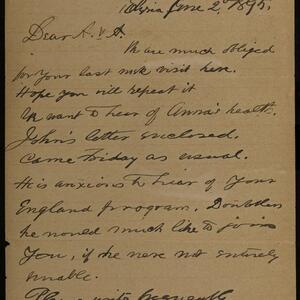 Elyria June 2, 1895.
Dear A. & A.
We are much obliged
for your last wk visit here.
Hope you will repeat it
We want to hear of Anna's health.
John's letter enclosed.
Came Friday as usual.
He is anxious to hear of your
England program. Doubtless
he would much like to join
you, if he were not entirely
unable.
Please write frequently